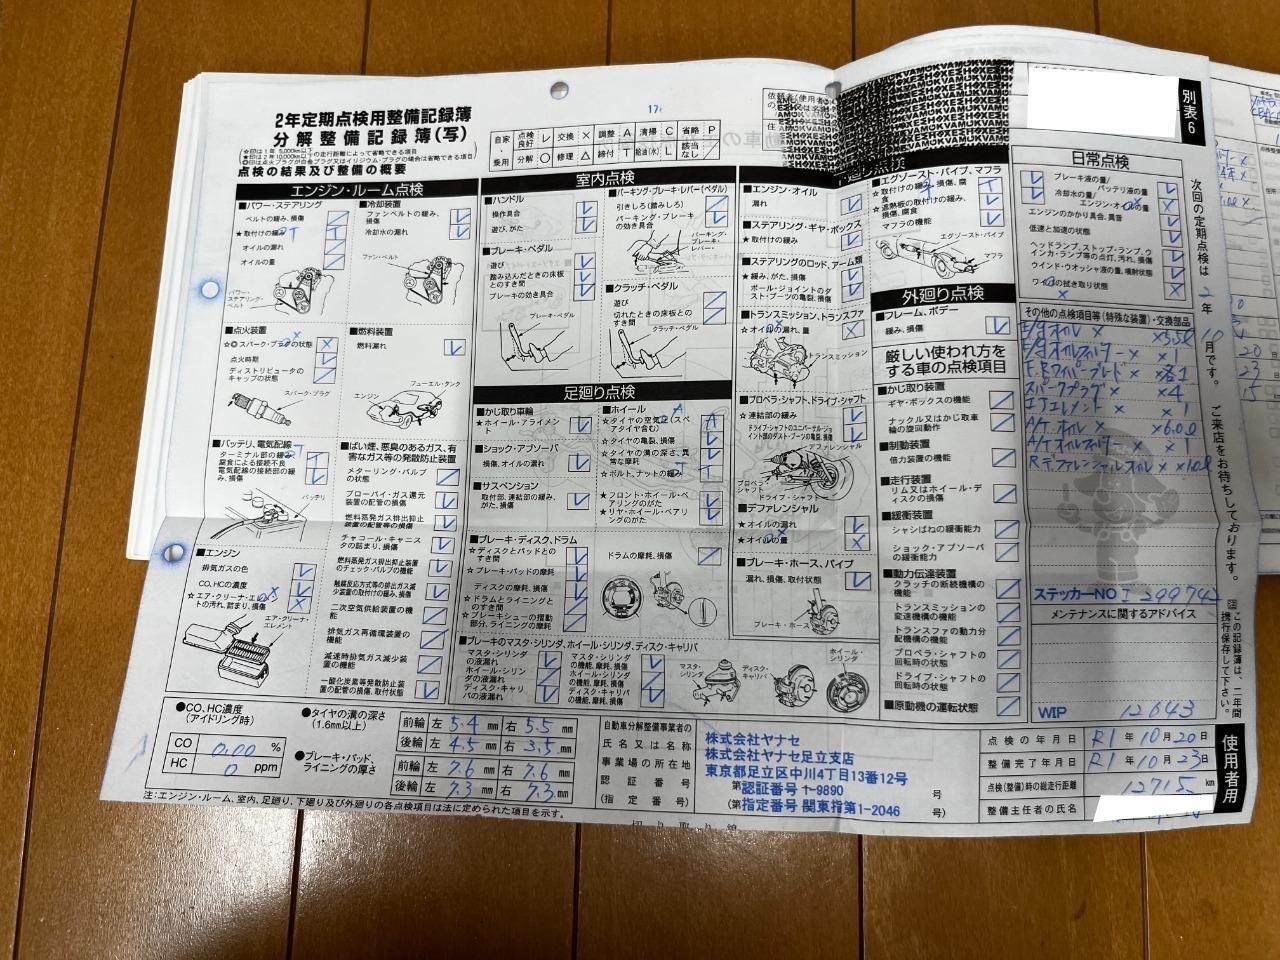 2年定期点検用整備記録簿
分解整備記録簿(写)
☆印は1年 5,000km以下
★印は2年10,000km以下の走行距離によって省略できる項目
◎印は点火プラグが白金プラグ又はイリジウム・プラグの場合は省略できる項目
点検の結果及び整備の概要
自家・乗用
点検良好 レ 交換 × 調整 A 清掃 C 省略 P
分解 ○ 修理 △ 締付 T 給油(水) L 該当なし
エンジン・ルーム点検
■パワー・ステアリング
ベルトの緩み、損傷
★取付けの緩み T
オイルの漏れ
オイルの量
パワー・ステアリング・ベルト
■冷却装置
ファンベルトの緩み、損傷
冷却水の漏れ
ファン・ベルト
■点火装置
☆◎スパーク・プラグの状態 ×
点火時期
ディストリビュータのキャップの状態
スパーク・プラグ
■燃料装置
燃料漏れ
フューエル・タンク
エンジン
■バッテリ、電気配線
ターミナル部の緩み、腐食による接続不良
電気配線の接続部の緩み、損傷
バッテリ
■ばい煙、悪臭のあるガス、有害なガス等の発散防止装置
メターリング・バルブの状態
ブローバイ・ガス還元装置の配管の損傷
燃料蒸発ガス排出抑止装置の配管等の損傷
チャコール・キャニスタの詰まり、損傷
燃料蒸発ガス排出抑止装置のチェック・バルブの機能
触媒反応方式等の排出ガス減少装置の取付けの緩み、損傷
二次空気供給装置の機能
排気ガス再循環装置の機能
減速時排気ガス減少装置の機能
一酸化炭素等発散防止装置の配管の損傷、取付状態
■エンジン
排気ガスの色
CO、HCの濃度
☆エア・クリーナ・エレメントの汚れ、詰まり、損傷
エア・クリーナ・エレメント
室内点検
■ハンドル
操作具合
遊び、がた
■ブレーキ・ペダル
遊び
踏み込んだときの床板とのすき間
ブレーキの効き具合
ブレーキ・ペダル
■パーキング・ブレーキ・レバー(ペダル)
引きしろ(踏みしろ)
パーキング・ブレーキの効き具合
パーキング・ブレーキ・レバー
■クラッチ・ペダル
遊び
切れたときの床板とのすき間
クラッチ・ペダル
足廻り点検
■かじ取り車輪
★ホイール・アライメント
■ショック・アブソーバ
損傷、オイルの漏れ
■サスペンション
取付部、連結部の緩み、がた、損傷
■ホイール
☆タイヤの空気圧(スペアタイヤ含む) A
☆タイヤの亀裂、損傷
☆タイヤの溝の深さ、異常な摩耗
☆ボルト、ナットの緩み T
★フロント・ホイール・ベアリングのがた
★リヤ・ホイール・ベアリングのがた
■ブレーキ・ディスク、ドラム
☆ディスクとパッドとのすき間
☆ブレーキ・パッドの摩耗
ディスクの摩耗、損傷
☆ドラムとライニングとのすき間
☆ブレーキシューの摺動部分、ライニングの摩耗
ドラムの摩耗、損傷
■ブレーキのマスタ・シリンダ、ホイール・シリンダ、ディスク・キャリパ
マスタ・シリンダの液漏れ
ホイール・シリンダの液漏れ
ディスク・キャリパの液漏れ
マスタ・シリンダの機能、摩耗、損傷
ホイール・シリンダの機能、摩耗、損傷
ディスク・キャリパの機能、摩耗、損傷
マスタ・シリンダ
ディスク・キャリパ
ホイール・シリンダ
■エンジン・オイル
漏れ
■ステアリング・ギヤ・ボックス
★取付けの緩み
■ステアリングのロッド、アーム類
★緩み、がた、損傷
ボール・ジョイントのダスト・ブーツの亀裂、損傷
■トランスミッション、トランスファ
☆オイルの漏れ、量
トランスミッション
■プロペラ・シャフト、ドライブ・シャフト
☆連結部の緩み
ドライブ・シャフトのユニバーサル・ジョイント部のダスト・ブーツの亀裂、損傷
デファレンシャル
プロペラ・シャフト
ドライブ・シャフト
■デファレンシャル
☆オイルの漏れ
☆オイルの量
■ブレーキ・ホース、パイプ
漏れ、損傷、取付状態
ブレーキ・ホース
■エグゾースト・パイプ、マフラ
★取付けの緩み、損傷、腐食
★遮熱板の取付けの緩み、損傷、腐食
マフラの機能
エグゾースト・パイプ
マフラ
外廻り点検
■フレーム、ボデー
緩み、損傷
厳しい使われ方をする車の点検項目
■かじ取り装置
ギヤ・ボックスの機能
ナックル又はかじ取車輪の旋回動作
■制動装置
倍力装置の機能
■走行装置
リム又はホイール・ディスクの損傷
■緩衝装置
シャシばねの緩衝能力
ショック・アブソーバの緩衝能力
■動力伝達装置
クラッチの断続機構の機能
トランスミッションの変速機構の機能
トランスファの動力分配機構の機能
プロペラ・シャフトの回転時の状態
ドライブ・シャフトの回転時の状態
■原動機の運転状態
日常点検
ブレーキ液の量
バッテリ液の量
冷却水の量
エンジン・オイルの量
エンジンのかかり具合、異音
低速と加速の状態
ヘッドランプ、ストップ・ランプ、ウインカ・ランプ等の点灯、汚れ、損傷
ウインド・ウオッシャ液の量、噴射状態
ワイパの拭き取り状態
その他の点検項目等(特殊な装置)・交換部品
E/gオイル ×
E/gオイルフィルター × ×1
F.Rワイパーブレード × 各1
スパークプラグ × ×4
エアエレメント × ×1
A/T オイル × ×6.0ℓ
A/T オイルフィルター × ×1
R デファレンシャルオイル × ×1.0ℓ
ステッカーNO I 299742
メンテナンスに関するアドバイス
WIP 12643
別表6
次回の定期点検は 2年 10月です。ご来店をお待ちしております。
この記録簿は、二年間携行保存して下さい。
使用者用
●CO、HC濃度(アイドリング時)
CO 0.00 %
HC 0 ppm
●タイヤの溝の深さ(1.6mm以上)
前輪 左 5.4 mm 右 5.5 mm
後輪 左 4.5 mm 右 3.5 mm
●ブレーキ・パッド、ライニングの厚さ
前輪 左 7.6 mm 右 7.6 mm
後輪 左 7.3 mm 右 7.3 mm
自動車分解整備事業者の氏名又は名称
事業場の所在地
認証番号
(指定番号)
株式会社ヤナセ
株式会社ヤナセ足立支店
東京都足立区中川4丁目13番12号
第 認証番号 1-9890 号
(第 指定番号 関東指第1-2046 号)
点検の年月日 R1年10月20日
整備完了年月日 R1年10月23日
点検(整備)時の総走行距離 12715 km
整備主任者の氏名
注:エンジン・ルーム、室内、足廻り、下廻り及び外廻りの各点検項目は法に定められた項目を示す。
切り取り線